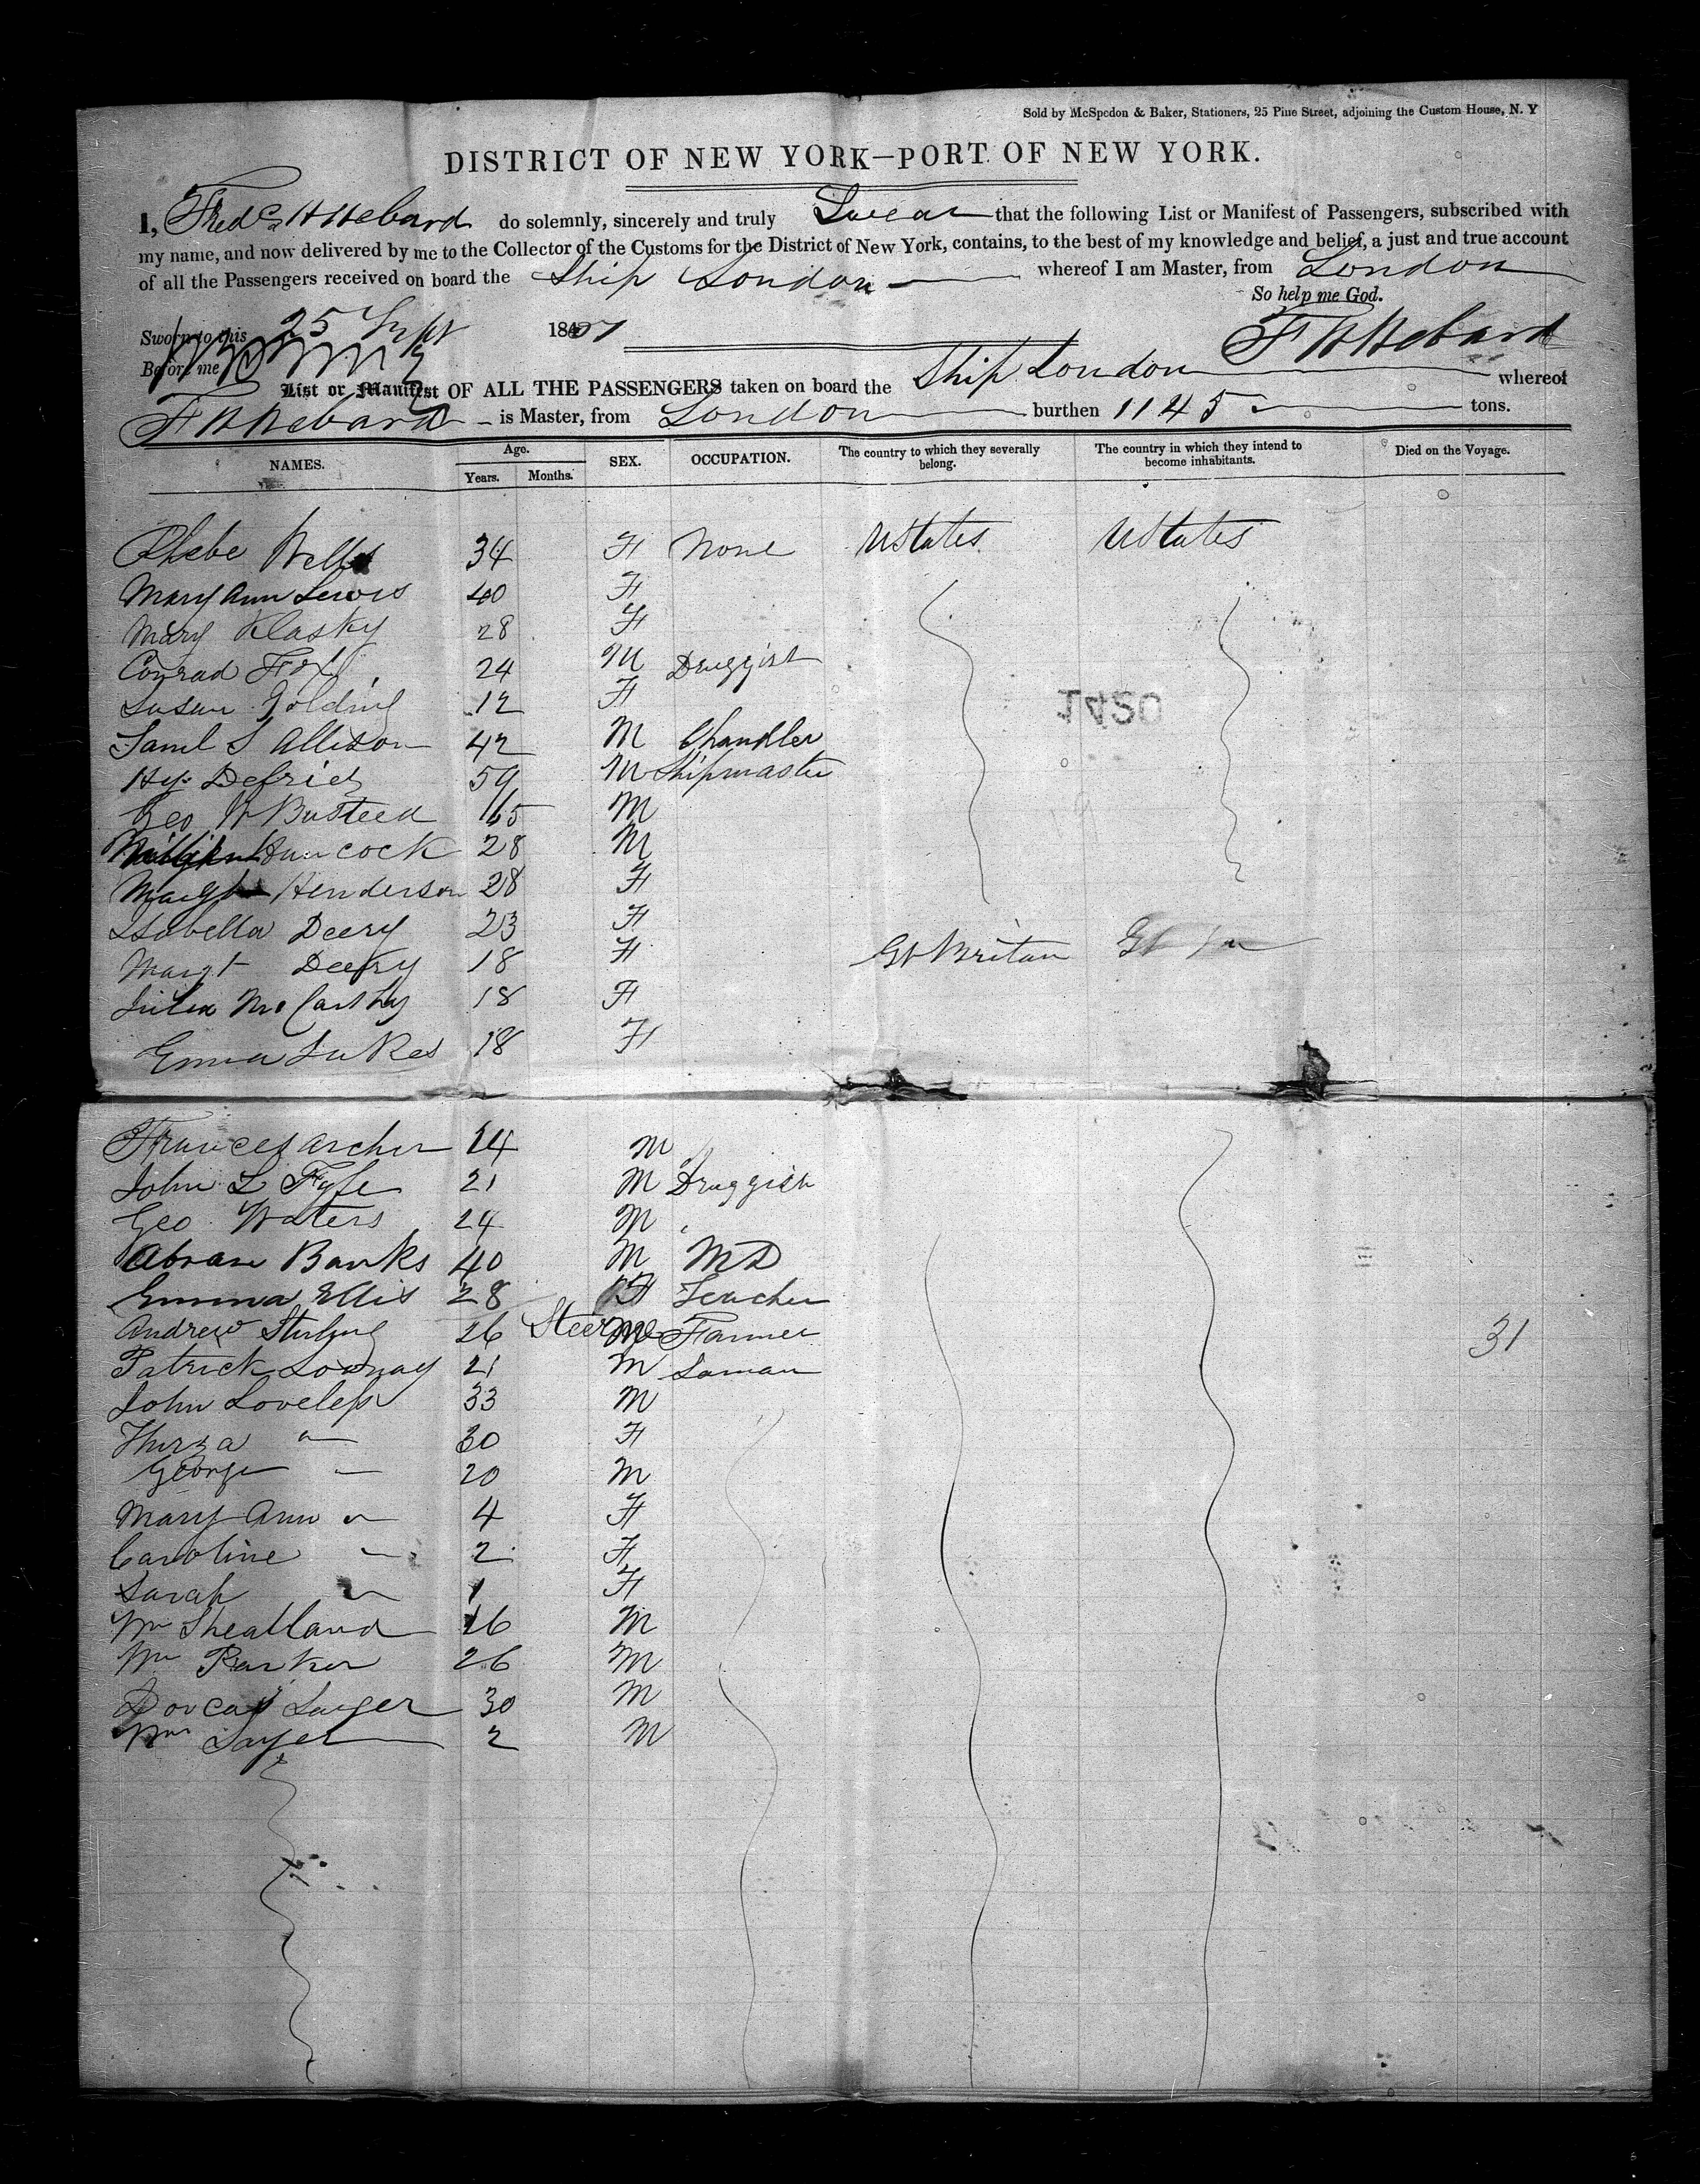 Sold by McSpedon & Baker, Stationers, 25 Pine Street, adjoining the Custom House, N. Y
DISTRICT OF NEW YORK—PORT OF NEW YORK.
I, Fredc H Hebard do solemnly, sincerely and truly Swear that the following List or Manifest of Passengers, subscribed with
my name, and now delivered by me to the Collector of the Customs for the District of New York, contains, to the best of my knowledge and belief, a just and true account
of all the Passengers received on board the Ship London whereof I am Master, from London
So help me God.
Sworn to this 25 Sept 185 F H Hebard
Before me
List or Manifest OF ALL THE PASSENGERS taken on board the Ship London whereof
F H Hebard is Master, from London burthen 1145 tons.
NAMES. Age. Years. Months. SEX. OCCUPATION. The country to which they severally belong. The country in which they intend to become inhabitants. Died on the Voyage.
Phebe Wells 34 F None UStates UStates
Mary Ann Lewis 40 F
Mary Klasky 28 F
Conrad Fox 24 M Druggist
Susan Golding 12 F
1420
Saml S Allison 42 M Chandler
Hy Defriez 59 M Shipmaster
Geo W Busteed 65 M
Hancock 28 M
Margt Henderson 28 F
Isabella Deery 23 F
Margt Deery 18 F Gt Britan Gt
Julia McCarthy 18 F
Emma Lukes 18 F
Frances Archer 14 M
John L Fyfe 21 M Druggist
Geo Waters 24 M
Abram Banks 40 M MD
Emma Ellis 28 F Teacher
Andrew Sterling 26 Steerge M Farmer 31
Patrick Lownay 21 M Laman
John Loveless 33 M
Thirza " 30 F
George " 20 M
Mary Ann " 4 F
Caroline " 2 F
Sarah " 1 F
Wm Shealland 16 M
Wm Parker 26 M
Dorcas Sayer 30 M
Wm Sayer 2 M